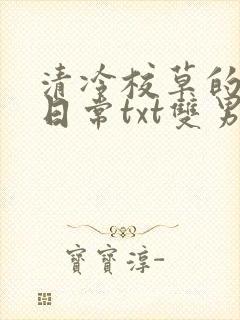 清冷校草的
日常txt雙男
寶寶淳-